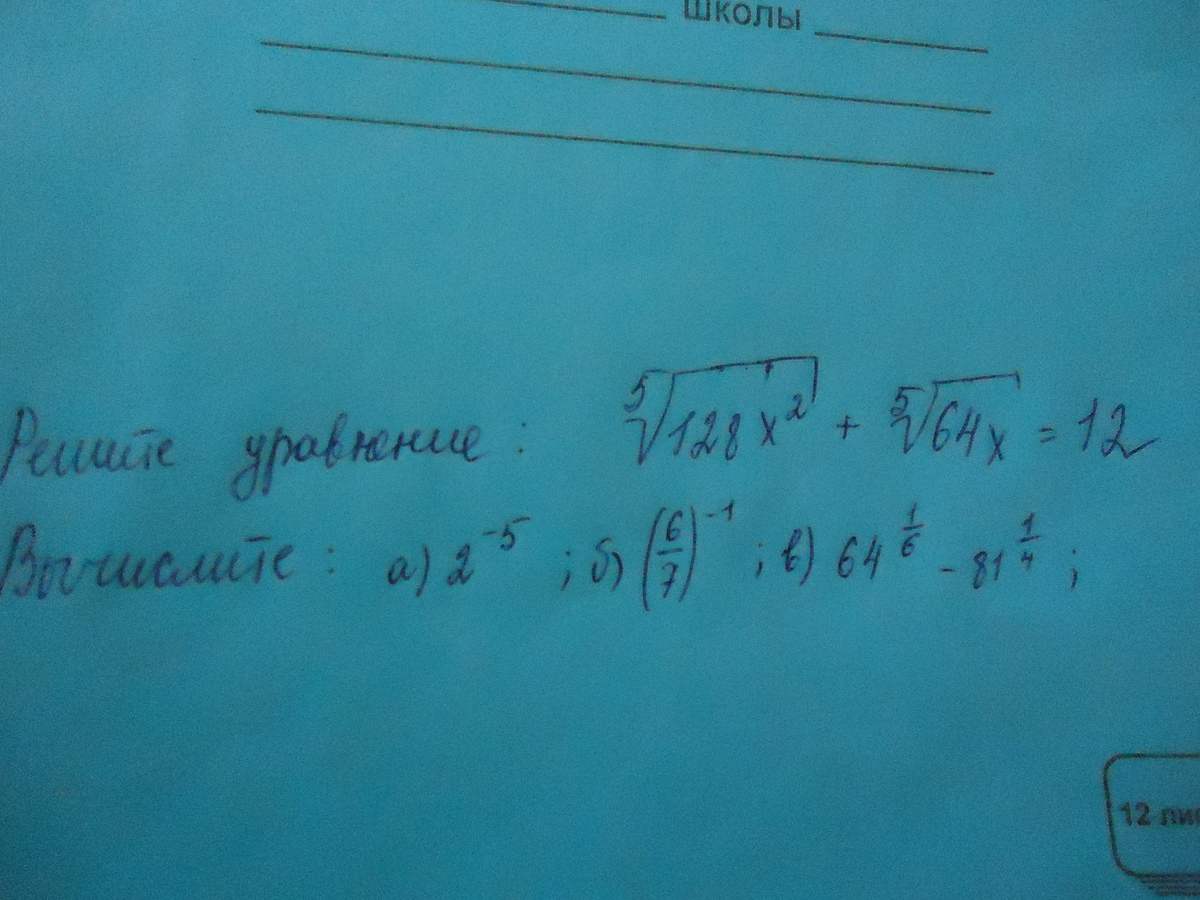 школы
Решите уравнение : ⁵√128x² + ⁵√64x = 12
Вычислите : а) 2⁻⁵ ; б) (6/7)⁻¹ ; в) 64^(1/6) - 81^(1/4) ;
12